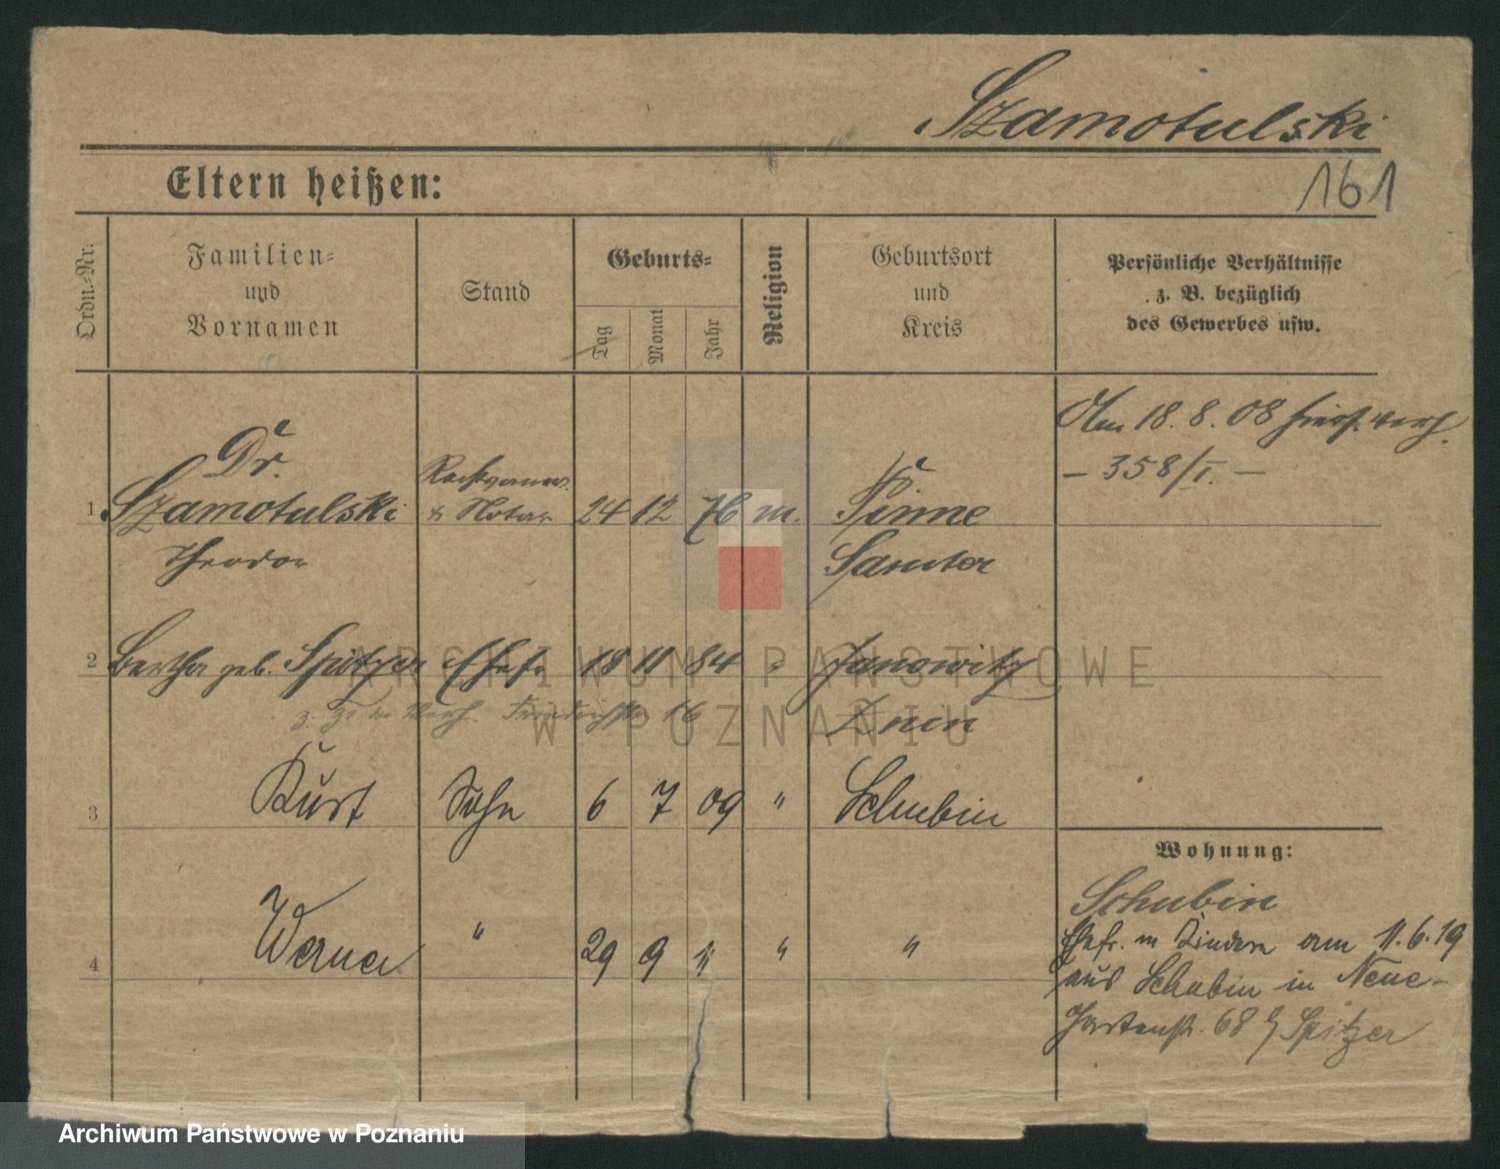 Szamotulski
161
Eltern heißen:
Ordn.-Nr.
Familien-
und
Vornamen
Stand
Geburts-
Tag
Monat
Jahr
Religion
Geburtsort
und
Kreis
Persönliche Verhältnisse
z. B. bezüglich
des Gewerbes usw.
Am 18. 8. 08 hier
- 358/I. -
Dr.
1 Szamotulski
& Notar 24 12 76 m. Pinne
Theodor
Samter
2 Bertha geb. Spitzer Ehefr. 18 11 84 " Janowitz
16
Znin
3 Kurt Sohn 6 7 09 " Schubin
Wohnung:
Schubin
4 Werner " 29 9 11 " "
Ehefr. m Kindern am 11.6.19
aus Schubin in Neue-
Gartenstr. 68 b/ Spitzer
ARCHIWUM PAŃSTWOWE
W POZNANIU
Archiwum Państwowe w Poznaniu